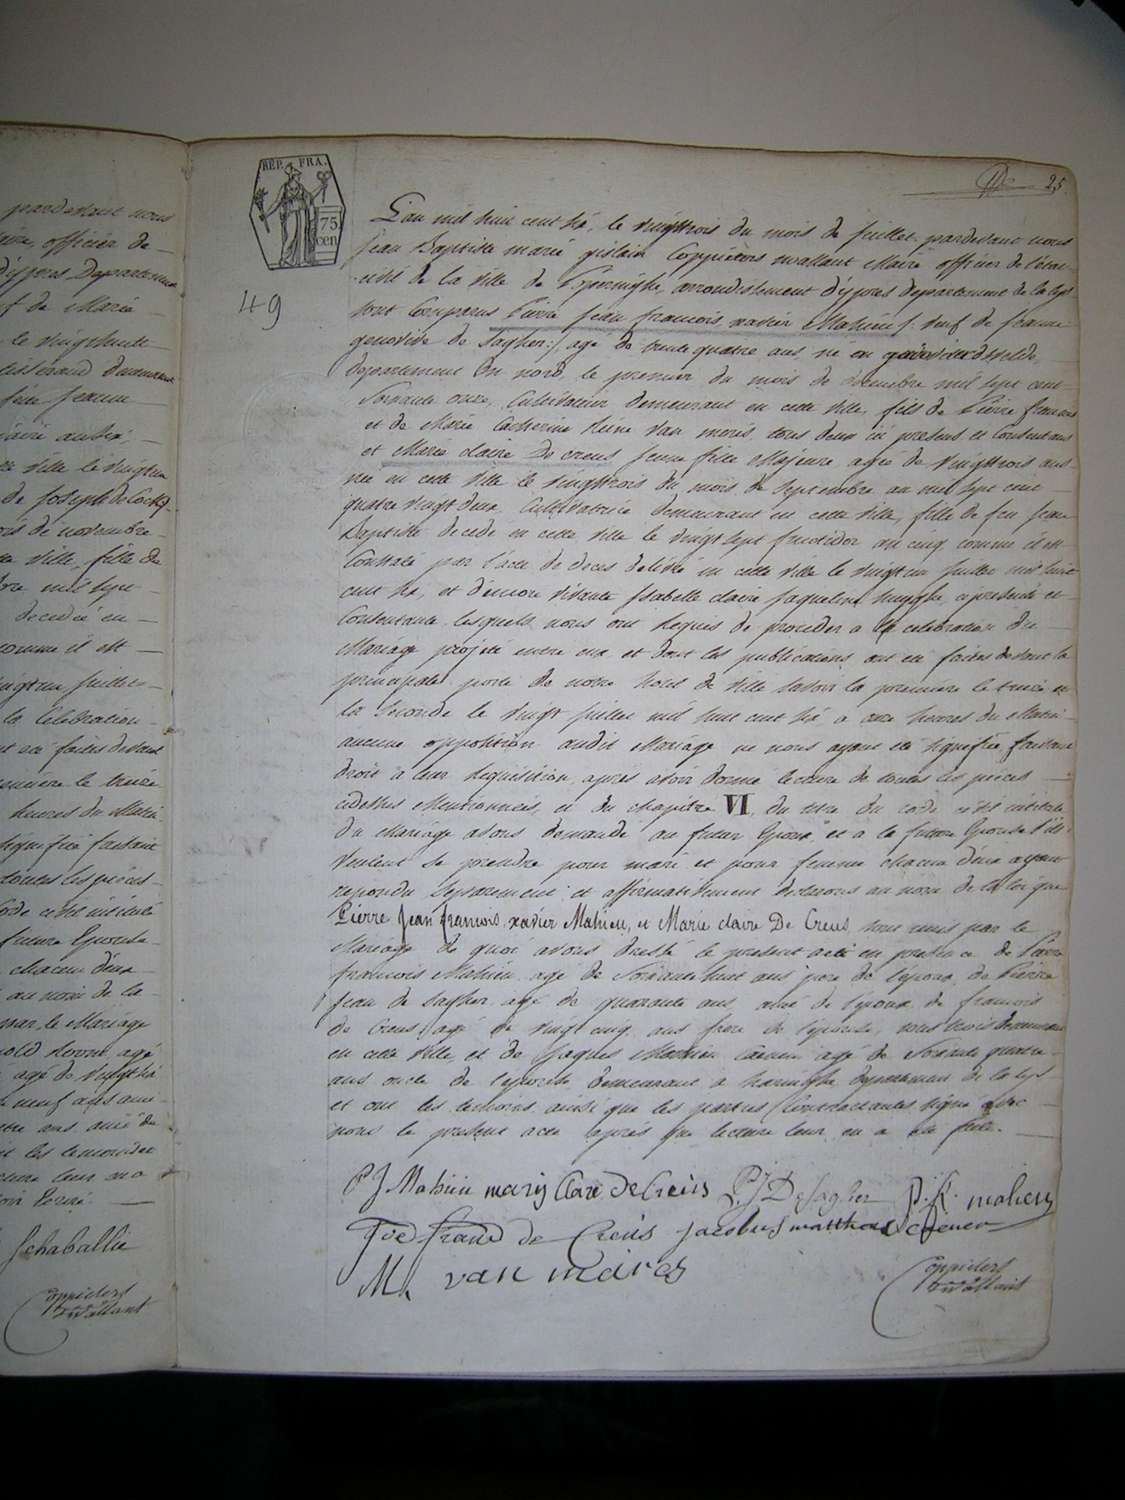 pardevant nous
officier de
d'ypres Departement
de Marie
le vingthuit
fille Jeanne
ville le vingtun
de Joseph de Cock
de novembre
ville, fille de
mil sept
decedé en
comme il est
vingtun juillet
la Celebration
été faites devant
premiere le treize
heures du Matin
signifiée faisant
toutes les pièces
code civil intitulé
future Epouse
chacun d'eux
au nom de la
par le Mariage
agé
agé de vingt six
neuf ans ami
ans ami de
les temoins
leur en a
Schaballie
Coppieters
Wallant
REP. FRA.
75
cen.
25
49
L'an mil huit cent six, le vingttrois du mois de Juillet pardevant nous
Jean Baptiste marie gislain Coppieters wallant Maire officier de l'etat
civil de la ville de Poperinghe, arrondissement d'ypres departement de la Lys
sont comparus Pierre Jean francois xavier Mahieu /: veuf de Jeanne
genoviève de Sagher :/ agé de trente quatre ans né en
departement du nord, le premier du mois de decembre mil sept cent
Soixante onze, Cultivateur demeurant en cette ville, fils de Pierre francois
et de Marie Catherine van meris, tous deux ici presens et Consentans
et Marie claire De Creus Jeune fille Majeure agée de vingttrois ans
née en cette ville le vingttrois du mois de Septembre an mil sept cent
quatre vingt deux, Cultivatrice demeurant en cette ville, fille de feu Jean
Baptiste decedé en cette ville le vingt sept fructidor an cinq comme il est
Constaté par l'acte de deces delivré en cette ville le vingtun juillet mil huit
cent six, et d'encore vivante Isabelle claire Jaqueline huyghe, ci presente et
Consentante, lesquels nous ont requis de proceder a la celebration du
Mariage projeté entre eux et dont les publications ont été faites devant la
principale porte de notre hotel de ville savoir la premiere le treize et
la Seconde le vingt juillet mil huit cent six a onze heures du Matin
aucune opposition audit Mariage ne nous ayant été signifiée faisant
droit à leur requisition, après avoir donné lecture de toutes les pièces
cidessus Mentionnées, et du chapitre VI, du titre du code civil intitulé
du Mariage avons demandé au futur Epoux et a la future Epouse s'ils
veulent se prendre pour mari et pour femme chacun d'eux ayant
repondu separement et affirmativement declarons au nom de la loi que
Pierre Jean francois xavier Mahieu, et Marie claire De Creus, sont unis par le
Mariage de quoi avons dressé le present acte en presence de Pierre
francois Mahieu agé de Soixante huit ans père de l'epoux, de Pierre
Jean de Sagher agé de quarante ans, ami de l'epoux, de francois
de Creus agé de vingt cinq ans frere de l'epouse, tous trois demeurans
en cette ville, et de Jaques Matthieu agé de Soixante quatre
ans oncle de l'epouse demeurant à haringhe departement de la Lys
et ont les temoins ainsi que les parties Contractantes signé avec
nous le present acte après que lecture leur en a été faite.
P J Mahieu marij Clare deCreüs P. J DeSagher P. F. mahieu
frans de Creüs Jacobus mattheus
van meires
Coppieters
Wallant